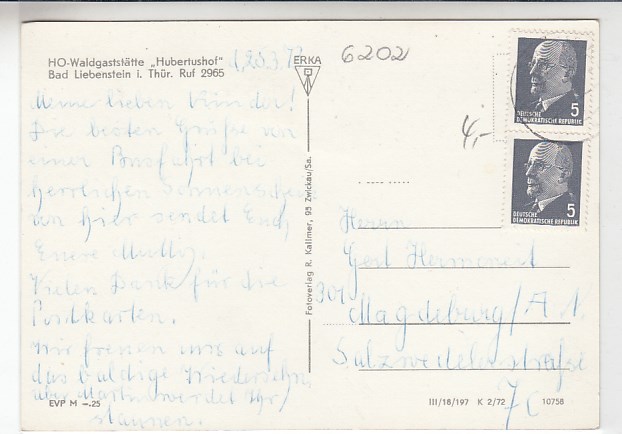 HO-Waldgaststätte „Hubertushof"
Bad Liebenstein i. Thür. Ruf 2965
ERKA
6202
4,-
5
DEUTSCHE
DEMOKRATISCHE REPUBLIK
5
DEUTSCHE
DEMOKRATISCHE REPUBLIK
Meine lieben Kinder!
Die besten Grüße von
einer Busfahrt bei
herrlichen Sonnenschein
von hier sendet Euch
Euere Mutti.
Vielen Dank für die
Postkarten.
Wir freuen uns auf
das baldige Wiedersehn,
über Martin werdet Ihr
staunen.
Fotoverlag R. Kallmer, 95 Zwickau/Sa.
Herrn
Gert
301 Magdeburg/
Salzwedelerstraße
7c
EVP M –.25
III/18/197 K 2/72
10758